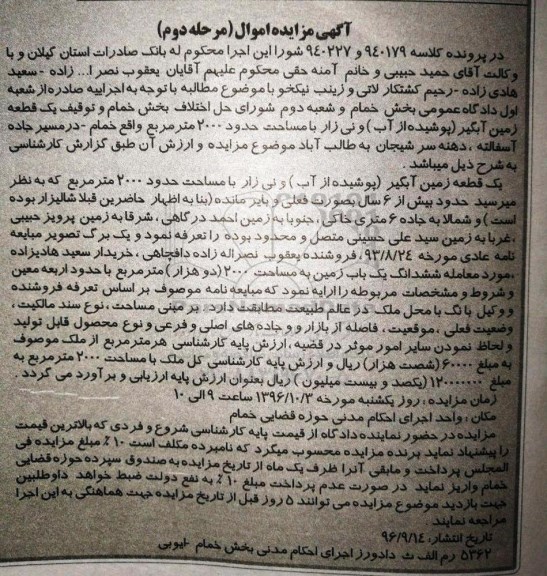 آگهی مزایده اموال (مرحله دوم)
در پرونده کلاسه ۹۴۰۱۷۹ و ۹۴۰۲۲۷ شورا این اجرا محکوم له بانک صادرات استان گیلان و با
وکالت آقای حمید حبیبی و خانم آمنه حقی محکوم علیهم آقایان یعقوب نصر ا... زاده - سعید
هادی زاده - رحیم کشتکار لاتی و زینب نیکخو با موضوع مطالبه با توجه به اجراییه صادره از شعبه
اول دادگاه عمومی بخش خمام و شعبه دوم شورای حل اختلاف بخش خمام و توقیف یک قطعه
زمین آبگیر (پوشیده از آب) و نی زار با مساحت حدود ۲۰۰۰ متر مربع واقع خمام - در مسیر جاده
آسفالته ، دهنه سر شیجان به طالب آباد موضوع مزایده و ارزش آن طبق گزارش کارشناسی
به شرح ذیل میباشد .
یک قطعه زمین آبگیر (پوشیده از آب ) و نی زار با مساحت حدود ۲۰۰۰ متر مربع که به نظر
میرسید حدود بیش از ۶ سال بصورت فعلی و بایر مانده (بنا به اظهار حاضرین قبلا شالیزار بوده
است ) و شمالا به جاده ۶ متری خاکی ، جنوبا به زمین احمد درگاهی ، شرقا به زمین پرویز حبیبی
، غربا به زمین سید علی حسینی متصل و محدود بوده را تعرفه نمود و یک برگ تصویر مبایعه
نامه عادی مورخه ۹۳/۸/۲۴ ، فروشنده یعقوب نصراله زاده دافچاهی ، خریدار سعید هادیزاده
، مورد معامله ششدانگ یک باب زمین به مساحت ۲۰۰۰ (دو هزار ) متر مربع با حدود اربعه معین
و شروط و مشخصات مربوطه را ارایه نمود که مبایعه نامه موصوف بر اساس تعرفه فروشنده
و وکیل بانک با محل ملک در عالم طبیعت مطابقت دارد. بر مبنی مساحت ، نوع سند مالکیت ،
وضعیت فعلی ، موقعیت ، فاصله از بازار و و جاده های اصلی و فرعی و نوع محصول قابل تولید
و لحاظ نمودن سایر امور موثر در قضیه ، ارزش پایه کارشناسی هر متر مربع از ملک موصوف
به مبلغ ۶۰۰۰۰ (شصت هزار) ریال و ارزش پایه کارشناسی کل ملک با مساحت ۲۰۰۰ متر مربع به
مبلغ ۱۲۰۰۰۰۰۰۰ (یکصد و بیست میلیون ) ریال بعنوان ارزش پایه ارزیابی و برآورد می گردد .
زمان مزایده : روز یکشنبه مورخه ۱۳۹۶/۱۰/۳ ساعت ۹ الی ۱۰
مکان : واحد اجرای احکام مدنی حوزه قضایی خمام
مزایده در حضور نماینده دادگاه از قیمت پایه کارشناسی شروع و فردی که بالاترین قیمت
را پیشنهاد نماید برنده مزایده محسوب میگردد که نامبرده مکلف است ۱۰ ٪ مبلغ مزایده فی
المجلس پرداخت و مابقی آنرا ظرف یک ماه از تاریخ مزایده به صندوق سپرده حوزه قضایی
خمام واریز نماید در صورت عدم پرداخت مبلغ ۱۰ ٪ به نفع دولت ضبط خواهد داوطلبین
جهت بازدید موضوع مزایده می توانند ۵ روز قبل از تاریخ مزایده جهت هماهنگی به این اجرا
مراجعه نمایند.
تاریخ انتشار: ۹۶/۹/۱۴
۵۳۶۲ رم الف ث دادورز اجرای احکام مدنی بخش خمام - ایوبی